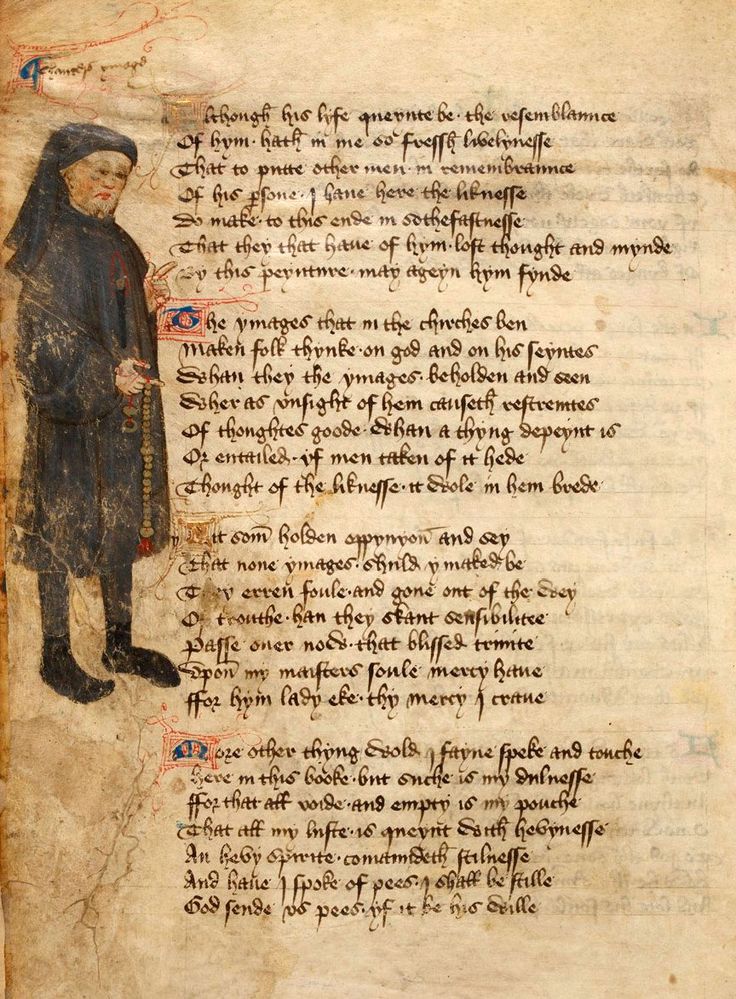 Chaucers ymage
Although his lyfe queynte be · the resemblaunce
Of hym · hath in me so fressh lyvelynesse
That to putte other men · in remembraunce
Of his persone · I have here the liknesse
Do make · to this ende in sothefastnesse
That they that have of hym · lost thought and mynde
By this peynture · may ageyn hym fynde
The ymages that in the chirches ben
Maken folk thynke · on god and on his seyntes
Whan they the ymages · beholden and seen
Wher as unsight of hem causeth restreintes
Of thoughtes goode · whan a thyng depeynt is
Or entailed · yf men taken of it hede
Thought of the liknesse · it wole in hem brede
yit som holden oppynyon and sey
That none ymages · shuld y maked be
They erren foule · and gone out of the wey
Of trouthe · han they skant sensibilitee
Passe over now · that blissed trinite
Upon my maisters soule mercy have
ffor hym lady eke · thy mercy I crave
More other thyng wold I fayne speke and touche
Here in this booke · but suche is my dulnesse
ffor that all voide · and empty is my pouche
That all my luste · is queynt with hevynesse
An hevy spirite · comaundeth stilnesse
And have I spoke of pees · I shall be stille
God sende us pees · yf it be his wille